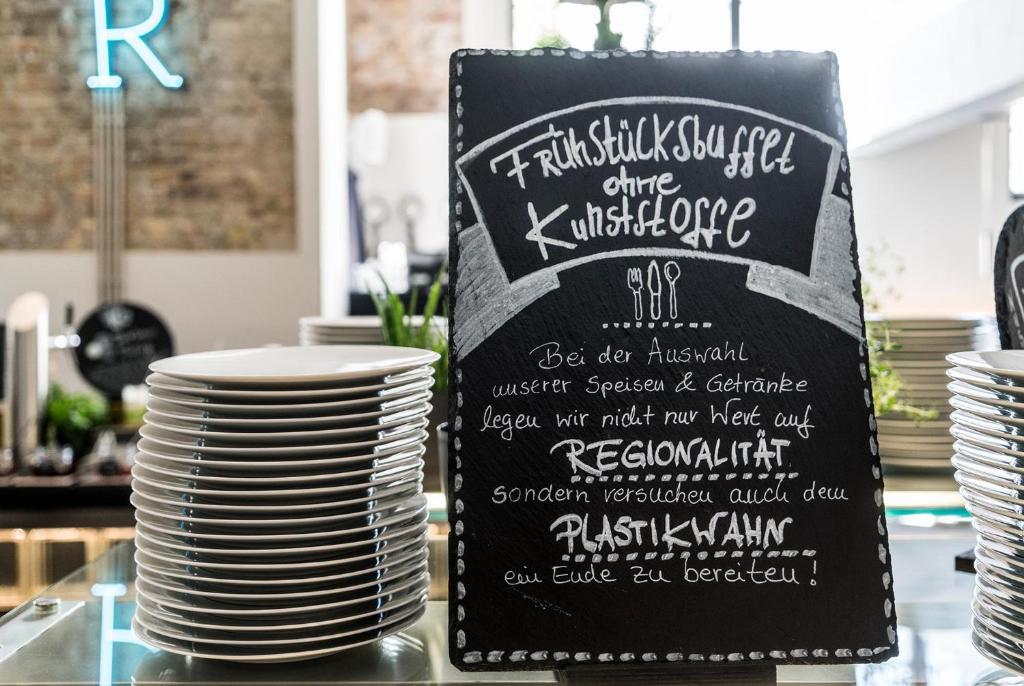 R
Frühstücksbuffet
ohne
Kunststoffe
Bei der Auswahl
unserer Speisen & Getränke
legen wir nicht nur Wert auf
REGIONALITÄT
sondern versuchen auch dem
PLASTIKWAHN
ein Ende zu bereiten!